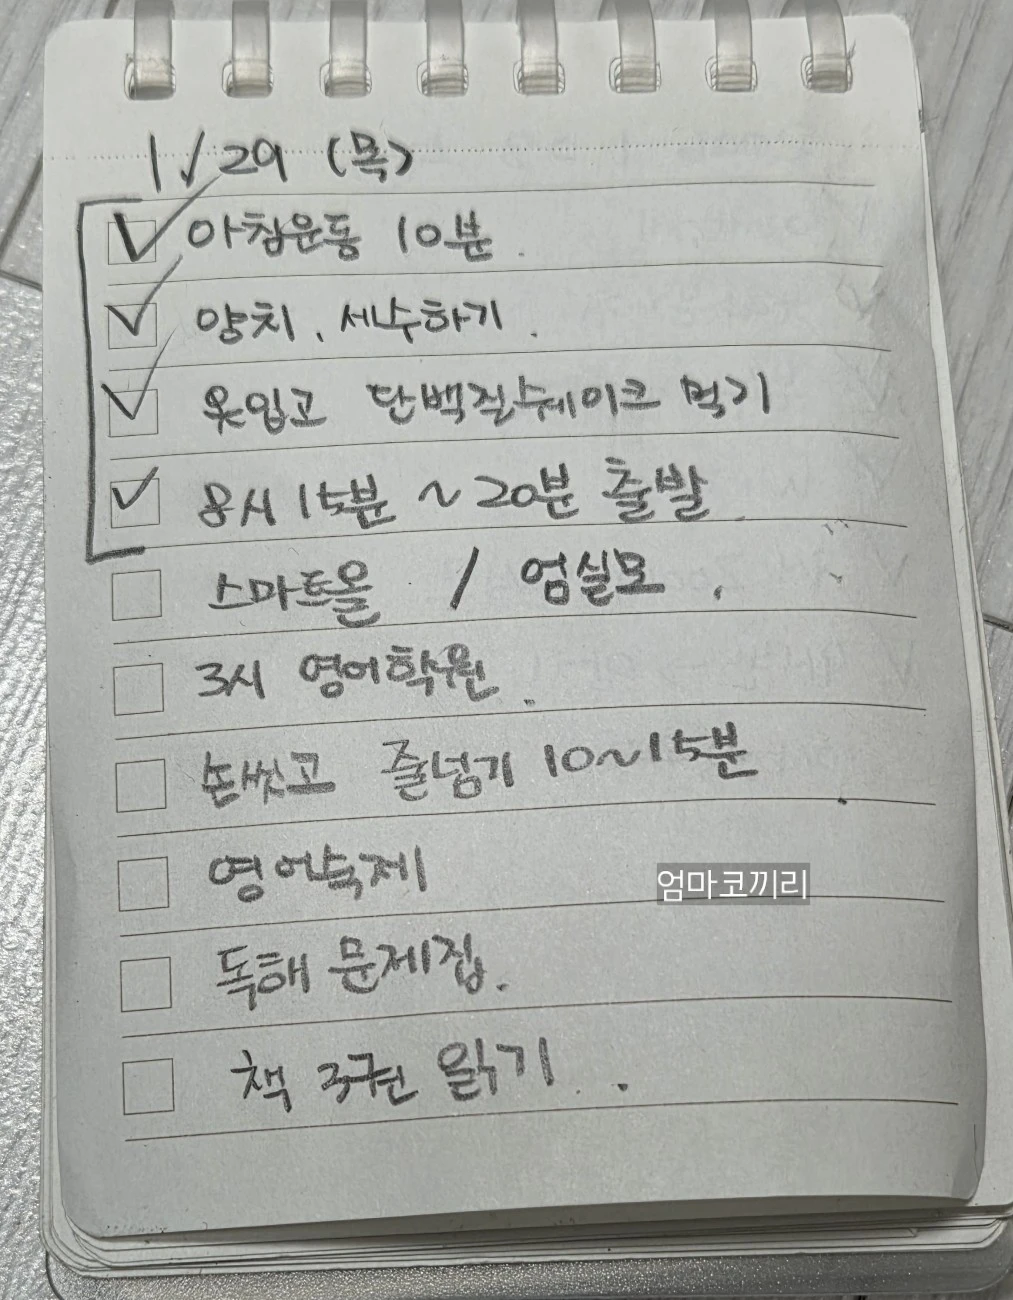 1/29 (목)
아침운동 10분.
양치, 세수하기.
옷입고 단백질쉐이크 먹기
8시 15분 ~ 20분 출발
스마트올 / 엄실모.
3시 영어학원.
손씻고 줄넘기 10~15분
영어숙제
엄마코끼리
독해 문제집.
책 3권 읽기.